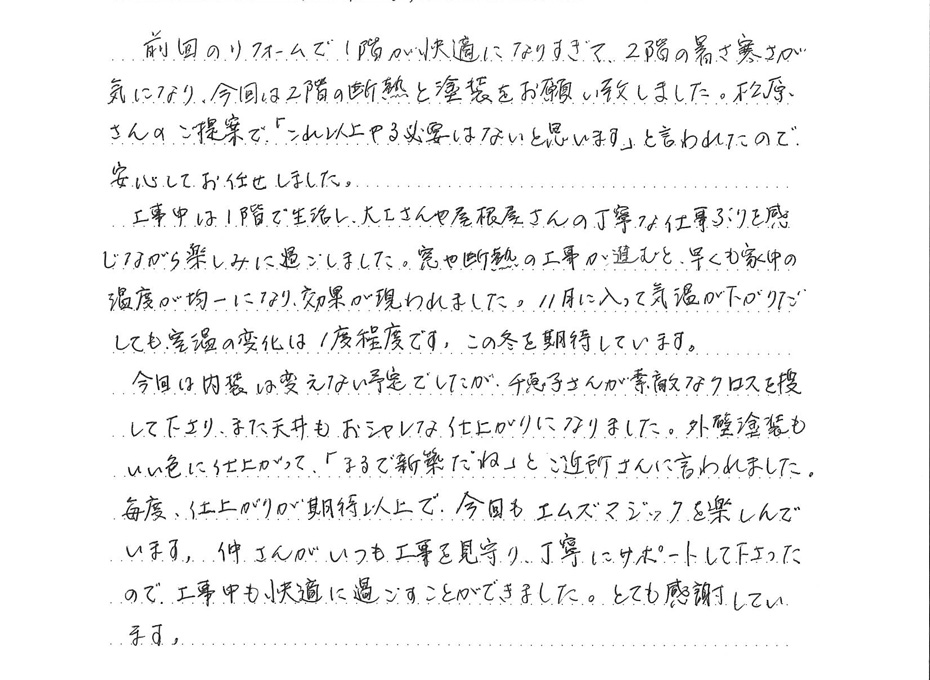 前回のリフォームで1階が快適になりすぎて、2階の暑さ寒さが
気になり、今回は2階の断熱と塗装をお願い致しました。松原
さんのご提案で、「これ以上やる必要はないと思います」と言われたので、
安心してお任せしました。
工事中は1階で生活し、大工さんや屋根屋さんの丁寧な仕事ぶりを感
じながら楽しみに過ごしました。窓や断熱の工事が進むと、早くも家中の
温度が均一になり、効果が現われました。11月に入って気温が下がりだ
しても室温の変化は1度程度です。この冬を期待しています。
今回は内装は変えない予定でしたが、千恵子さんが素敵なクロスを捜
して下さり、また天井もおシャレな仕上がりになりました。外壁塗装も
いい色に仕上がって、「まるで新築だね」とご近所さんに言われました。
毎度、仕上がりが期待以上で、今回もエムズマジックを楽しんで
います。仲さんがいつも工事を見守り、丁寧にサポートして下さった
ので、工事中も快適に過ごすことができました。とても感謝してい
ます。